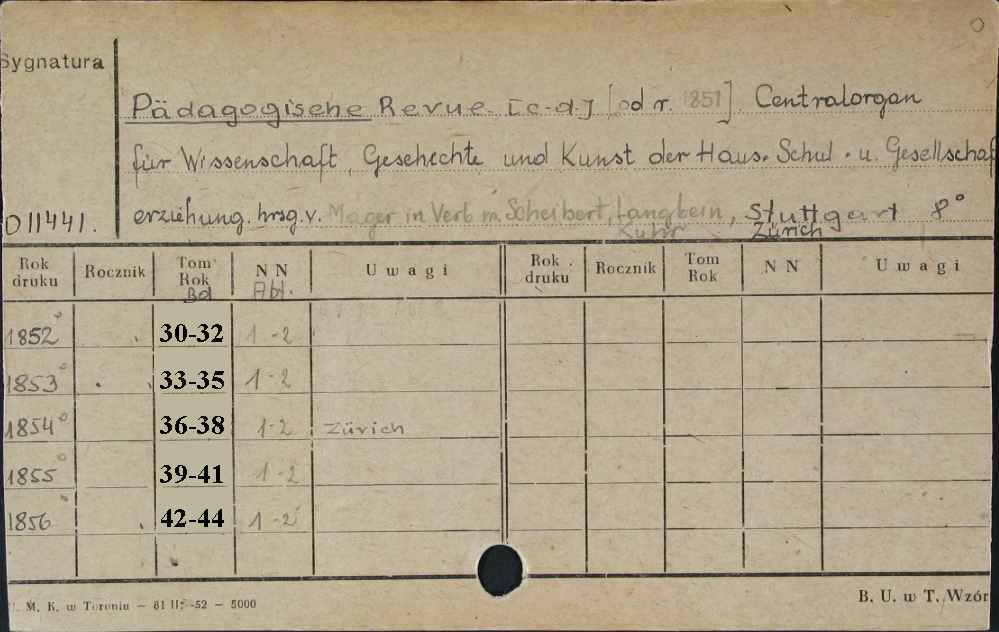 Sygnatura
Pädagogische Revue. [c.d.] [od r. 1851] Centralorgan
für Wissenschaft, Geschichte und Kunst der Haus- Schul- u. Gesellschaf
011441. erziehung. hrsg. v. Mager in Verb m. Scheibert, Langbein, Stuttgart 8°
Kuhr Zürich
Rok druku Rocznik Tom Rok Bd NN Abt. Uwagi Rok druku Rocznik Tom Rok NN Uwagi
1852 30-32 1-2
1853 33-35 1-2
1854 36-38 1-2 Zürich
1855 39-41 1-2
1856 42-44 1-2
U. M. K. w Toruniu — 81 II. -52 — 5000 B. U. w T. Wzór